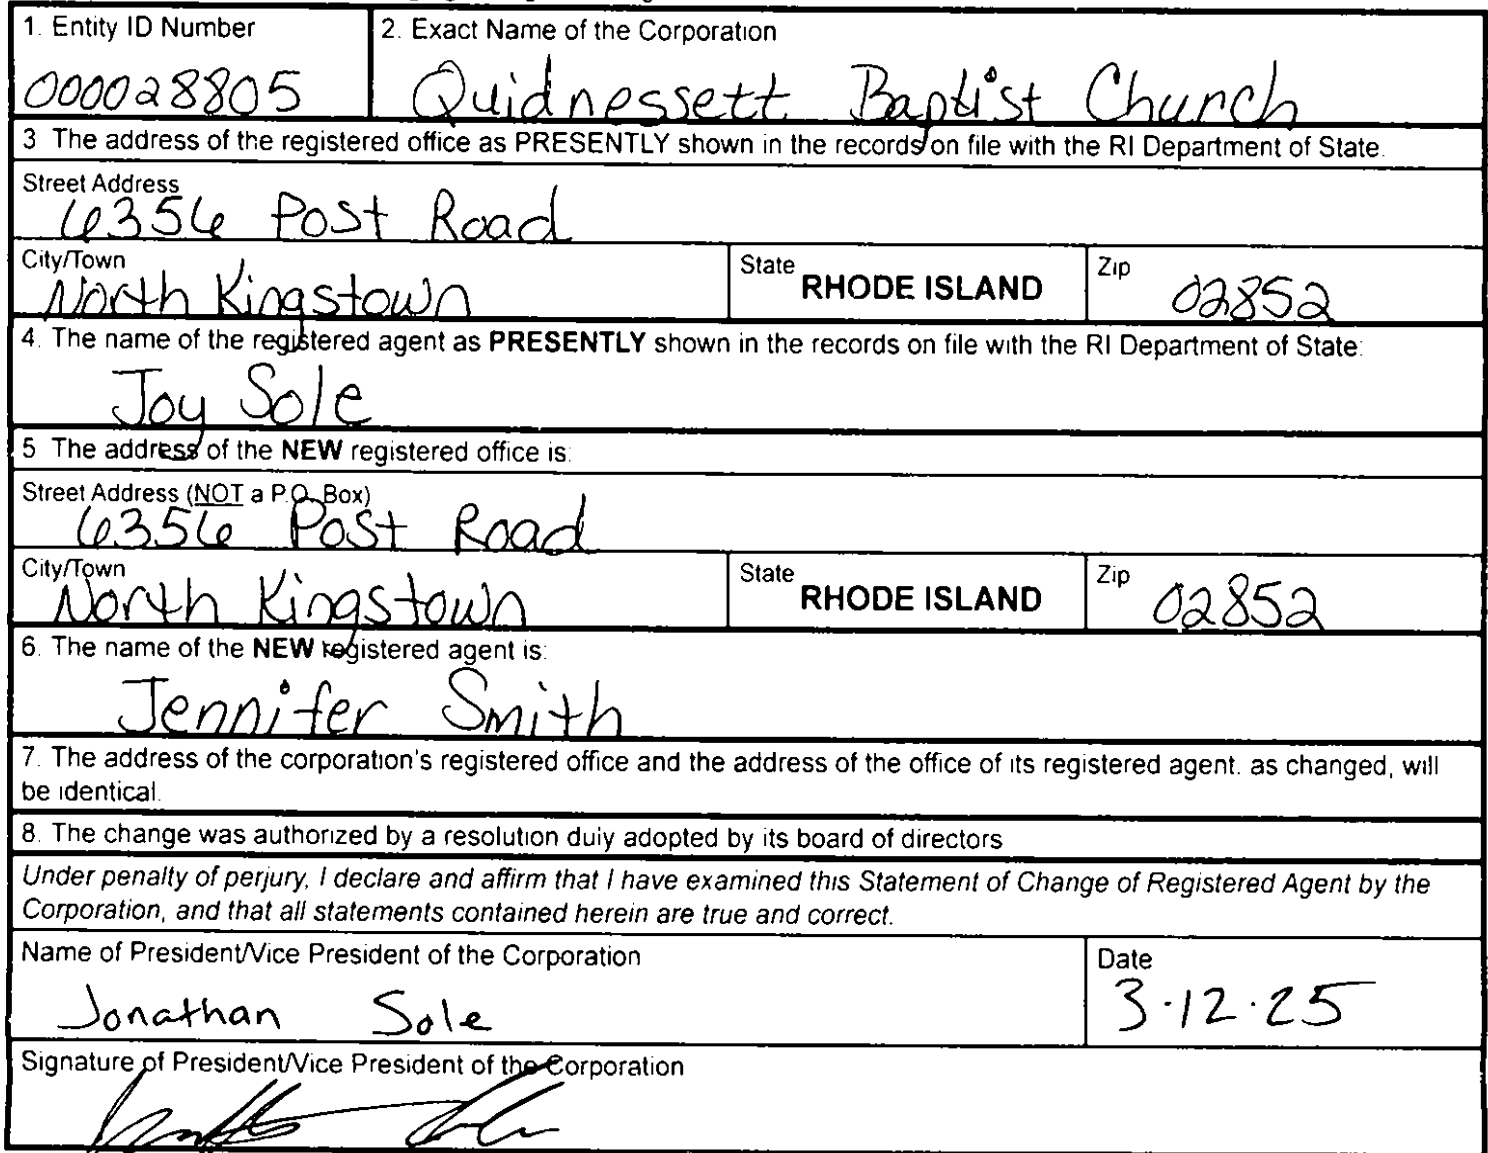 1. Entity ID Number
2. Exact Name of the Corporation
000028805
Quidnessett Baptist Church
3 The address of the registered office as PRESENTLY shown in the records on file with the RI Department of State.
Street Address
6356 Post Road
City/Town
North Kingstown
State
RHODE ISLAND
Zip
02852
4. The name of the registered agent as PRESENTLY shown in the records on file with the RI Department of State:
Joy Sole
5 The address of the NEW registered office is:
Street Address (NOT a P.O. Box)
6356 Post Road
City/Town
North Kingstown
State
RHODE ISLAND
Zip
02852
6. The name of the NEW registered agent is:
Jennifer Smith
7. The address of the corporation's registered office and the address of the office of its registered agent. as changed, will
be identical.
8. The change was authorized by a resolution duly adopted by its board of directors
Under penalty of perjury, I declare and affirm that I have examined this Statement of Change of Registered Agent by the
Corporation, and that all statements contained herein are true and correct.
Name of President/Vice President of the Corporation
Jonathan Sole
Date
3.12.25
Signature of President/Vice President of the Corporation